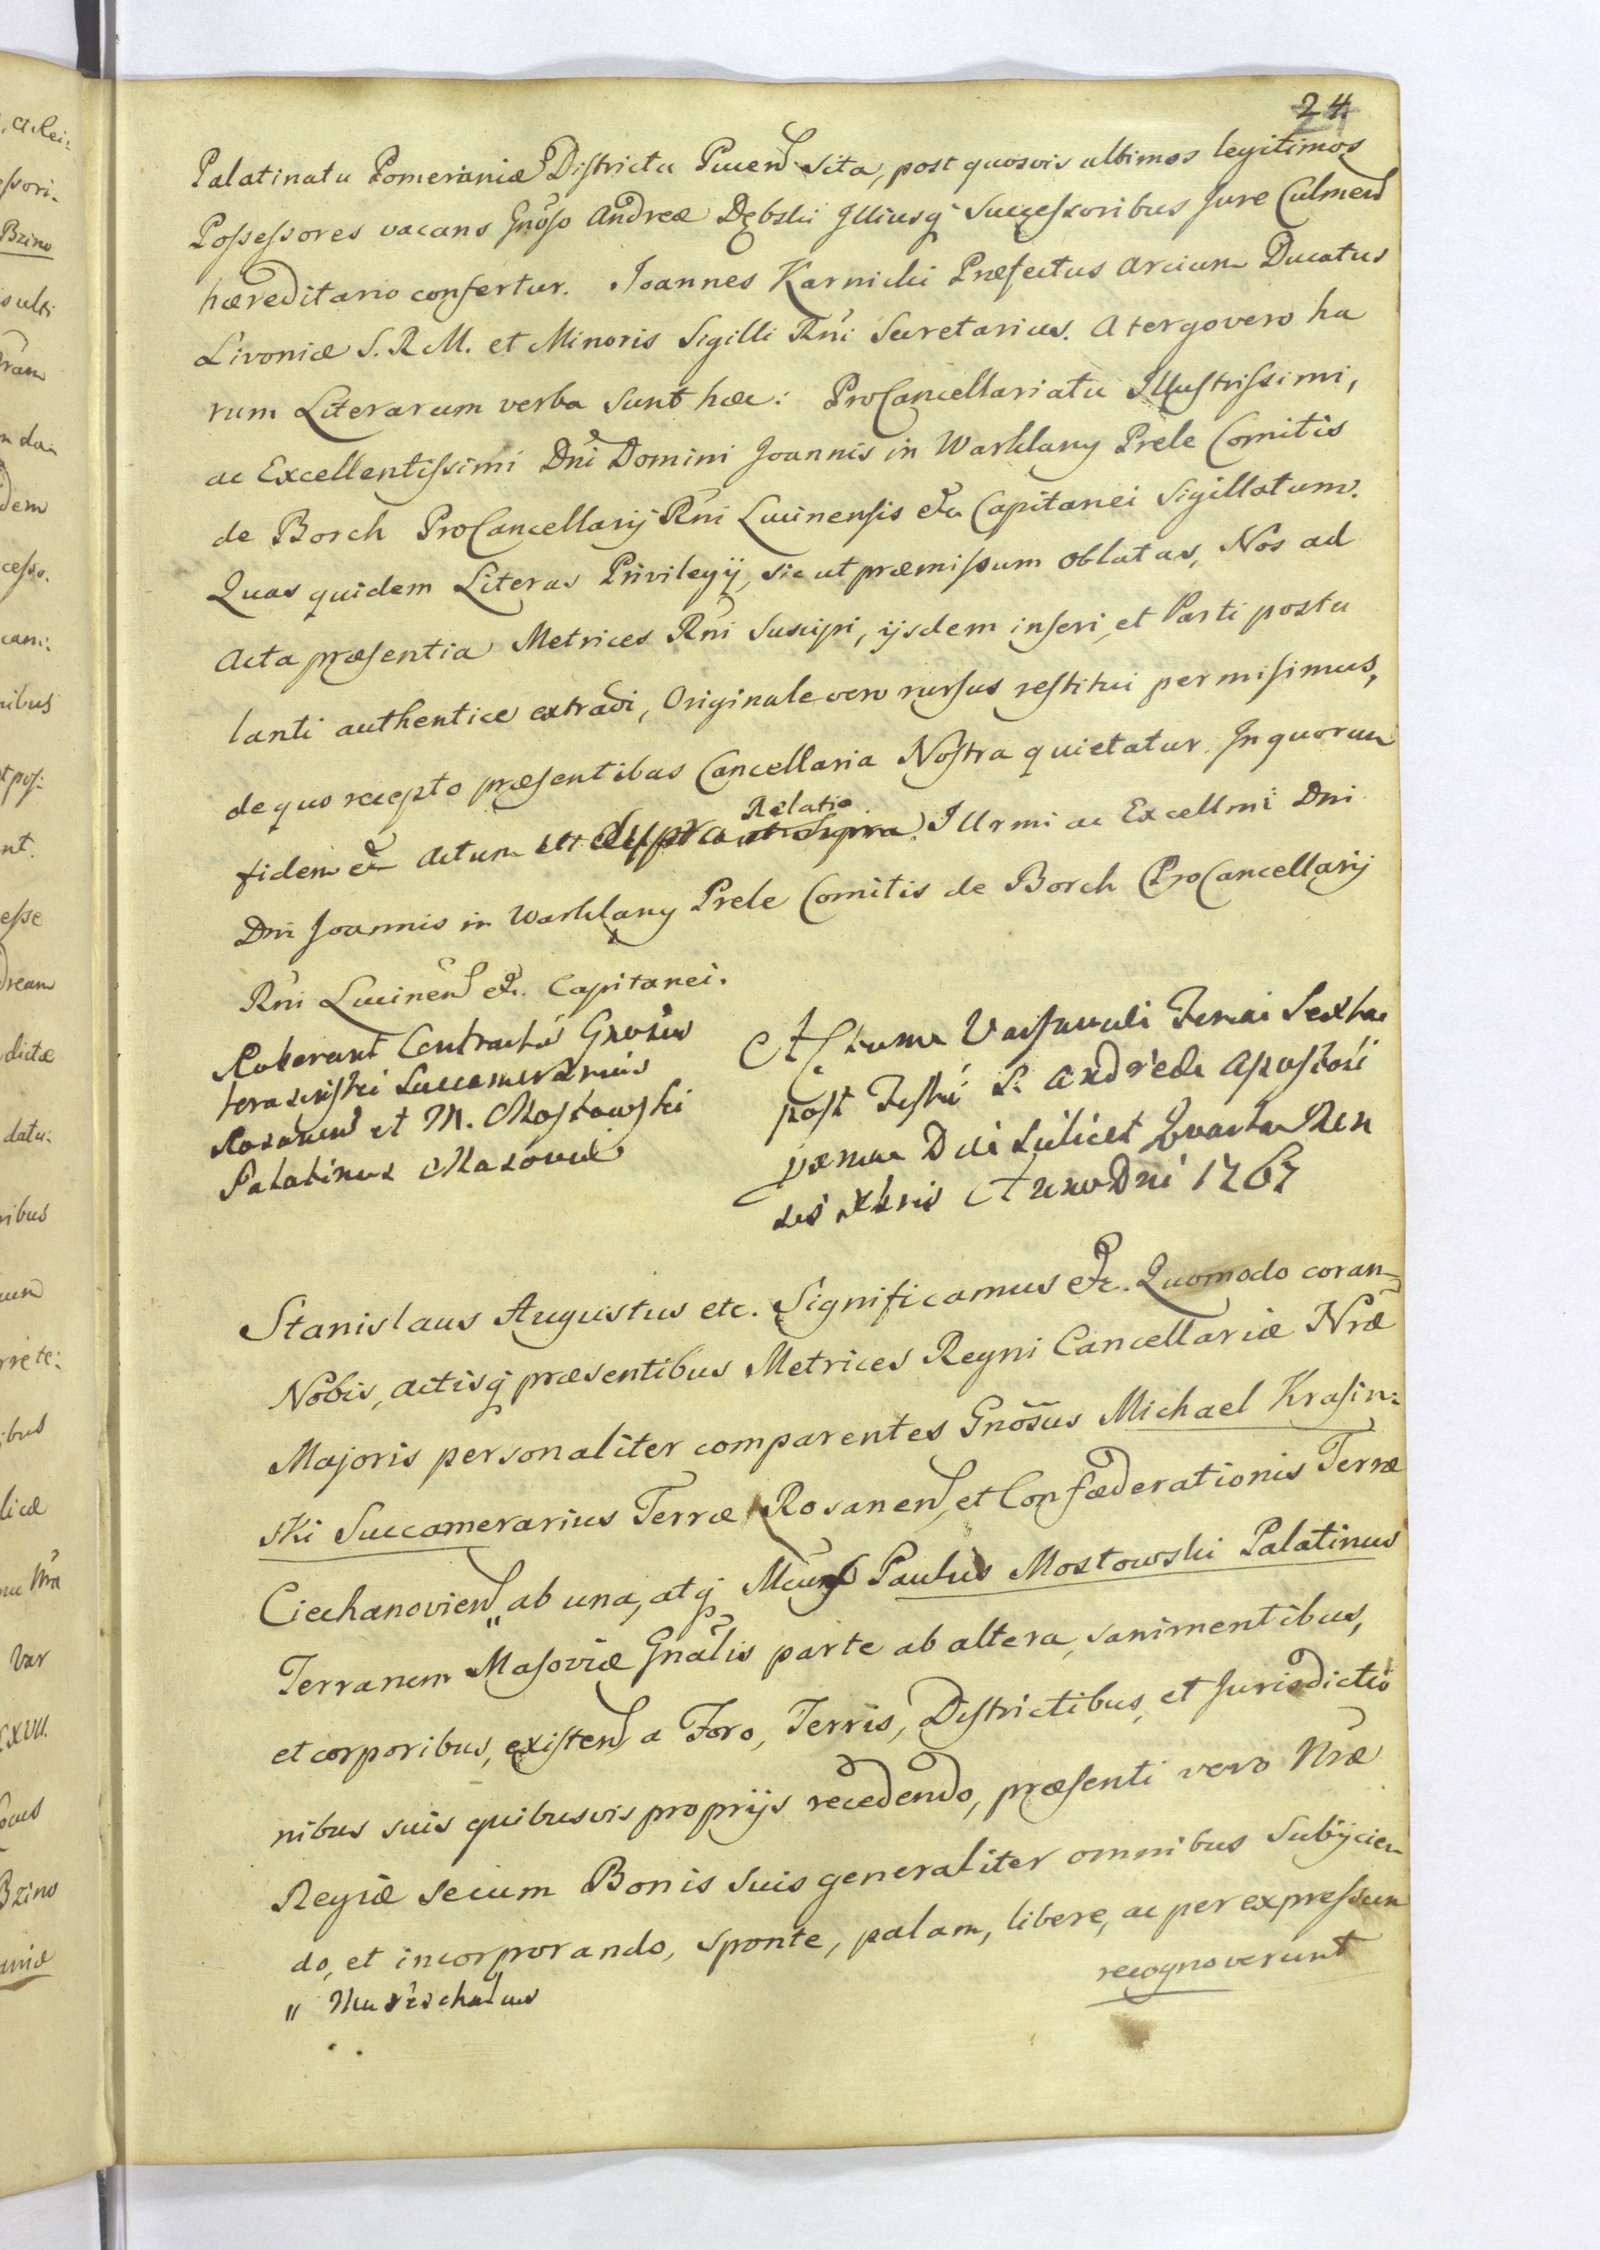 24
Palatinatu Pomeraniæ Districtu Pucen sita, post quosvis ultimos legitimos
Possessores vacans Gnoso Andreæ Dębski Illiusq Successoribus Jure Culmen
hæreditario confertur. Joannes Karnicki Præfectus Arcium Ducatus
Livoniæ S. R M. et Minoris Sigilli Rni Secretarius. A tergo vero ha
rum Literarum verba sunt hæc: ProCancellariatu Illustrissimi,
ac Excellentissimi Dni Domini Joannis in Warklany Prele Comitis
de Borch ProCancellarij Rni Lucinensis etc Capitanei Sigillatum.
Quas quidem Literas Privilegij, sic ut præmissum oblatas, Nos ad
Acta præsentia Metrices Rni Suscipi, ijsdem inseri, et Parti postu
lanti authentice extradi, Originale vero rursus restitui permisimus,
de quo recepto præsentibus Cancellaria Nostra quietatur. In quorum
fidem etc Actum ut supra ut Supra. Relatio Illrmi ac Excellmi Dni
Dni Joannis in Warklany Prele Comitis de Borch ProCancellarij
Rni Lucinen etc. Capitanei.
Roborant Contractu Gnosus
Krasinski Succamerarius
Rosanen et M. Mostowski
Palatinus Masoviæ
Actum Varsaviæ Feria Sexta
post Festu S. Andreæ Apostoli
proxima Die scilicet Quarta Men
sis Xbris Anno Dni 1767
Stanislaus Augustus etc. Significamus etc. Quomodo coram
Nobis, actisq præsentibus Metrices Regni Cancellariæ Nræ
Majoris personaliter comparentes Gnosus Michael Krasin:
ski Succamerarius Terræ Rosanen, et Confæderationis Terræ
Ciechanovien " ab una, atq Mcus Paulus Mostowski Palatinus
Terrarum Masoviæ Gnalis parte ab altera, sani mentibus,
et corporibus, existen a Foro, Terris, Districtibus, et Jurisdictio
nibus suis quibusvis proprijs recedendo, præsenti vero Nræ
Regiæ secum Bonis suis generaliter omnibus subijcien
do, et incorporando, sponte, palam, libere, ac per expressum
recognoverunt
" Mareschalcus